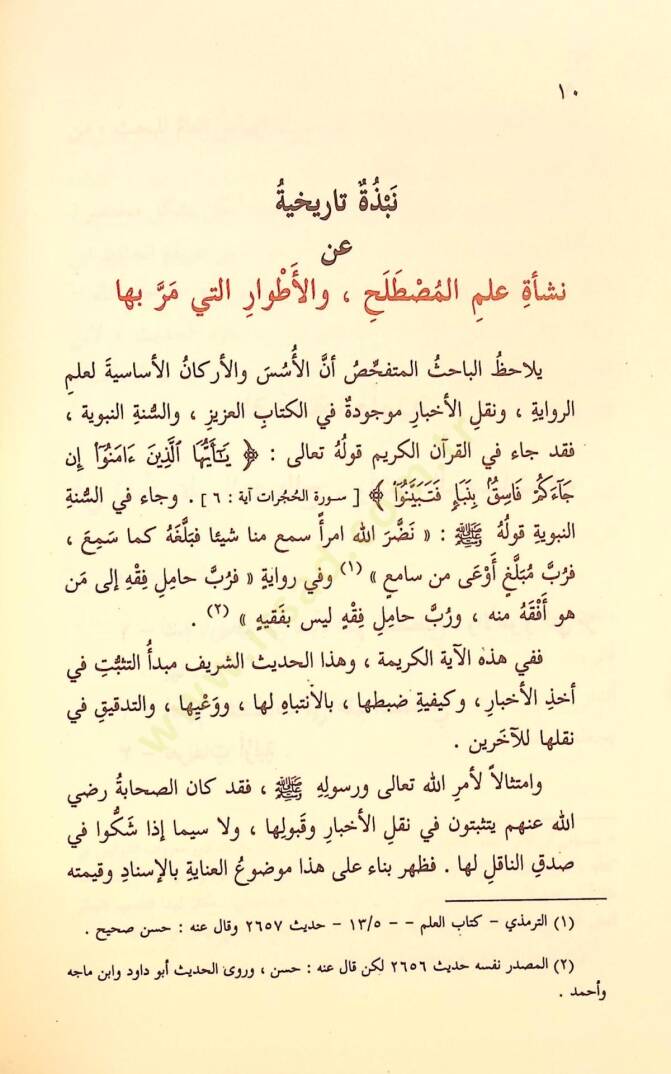 ١٠
نَبْذَةٌ تاريخيةُ
عن
نشأةِ علمِ المُصْطَلَحِ ، والأَطْوارِ التي مَرَّ بها
يلاحظُ الباحثُ المتفحِّصُ أنَّ الأُسُسَ والأركانُ الأساسيةَ لعلمِ
الروايةِ ، ونقلِ الأخبارِ موجودةٌ في الكتابِ العزيزِ ، والسُنةِ النبوية ،
فقد جاء في القرآن الكريم قولُهُ تعالى : ﴿ يَٰٓأَيُّهَا ٱلَّذِينَ ءَامَنُوٓا۟ إِن
جَآءَكُمْ فَاسِقٌۢ بِنَبَإٍ فَتَبَيَّنُوٓا۟ ﴾ [ سورة الحُجرات آية : ٦ ] . وجاء في السُنةِ
النبويةِ قولُهُ ﷺ : « نَضَّرَ الله امرأً سمع منا شيئا فبَلَّغَهُ كما سَمِعَ ،
فرُبَّ مُبَلَّغٍ أَوْعَى من سامعٍ » (١) وفي روايةٍ « فرُبَّ حاملِ فِقْهٍ إلى مَن
هو أَفْقَهُ منه ، ورُبَّ حاملِ فِقْهٍ ليس بفَقيهٍ » (٢) .
ففي هذه الآية الكريمة ، وهذا الحديث الشريف مبدأُ التثبُّتِ في
أخذِ الأخبارِ، وكيفيةِ ضبطها ، بالانتباهِ لها ، ووَعْيِها ، والتدقيقِ في
نقلها للآخَرين .
وامتثالاً لأمرِ الله تعالى ورسولِهِ ﷺ ، فقد كان الصحابةُ رضي
الله عنهم يتثبتون في نقلِ الأخبارِ وقَبولِها ، ولا سيما إذا شَكُّوا في
صدقِ الناقلِ لها . فظهر بناء على هذا موضوعُ العنايةِ بالإسنادِ وقيمته
(١) الترمذي – كتاب العلم – – ١٣/٥ – حديث ٢٦٥٧ وقال عنه : حسن صحيح .
(٢) المصدر نفسه حديث ٢٦٥٦ لكن قال عنه : حسن ، وروى الحديث أبو داود وابن ماجه
وأحمد .